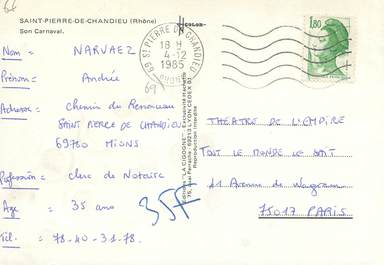 66
SAINT-PIERRE-DE-CHANDIEU (Rhône)
Son Carnaval.
Nom = NARVAEZ
Prénom = Andrée
Adresse = Chemin du Renouveau
SAINT PIERRE DE CHANDIEU
69780 MIONS
Profession = clerc de Notaire
Age = 35 ans
Tél. = 78-40-31-78.
35F
Editions "LA CIGOGNE" - Exclusivité Hachette
75, Rue 69213 LYON CEDEX
Reproduction interdite
69 ST PIERRE DE CHANDIEU
18 H
4-12
1985
RHONE
69
1,80
THEATRE DE L'EMPIRE
TOUT LE MONDE LE SAIT
41 Avenue de Wagram
75017 PARIS